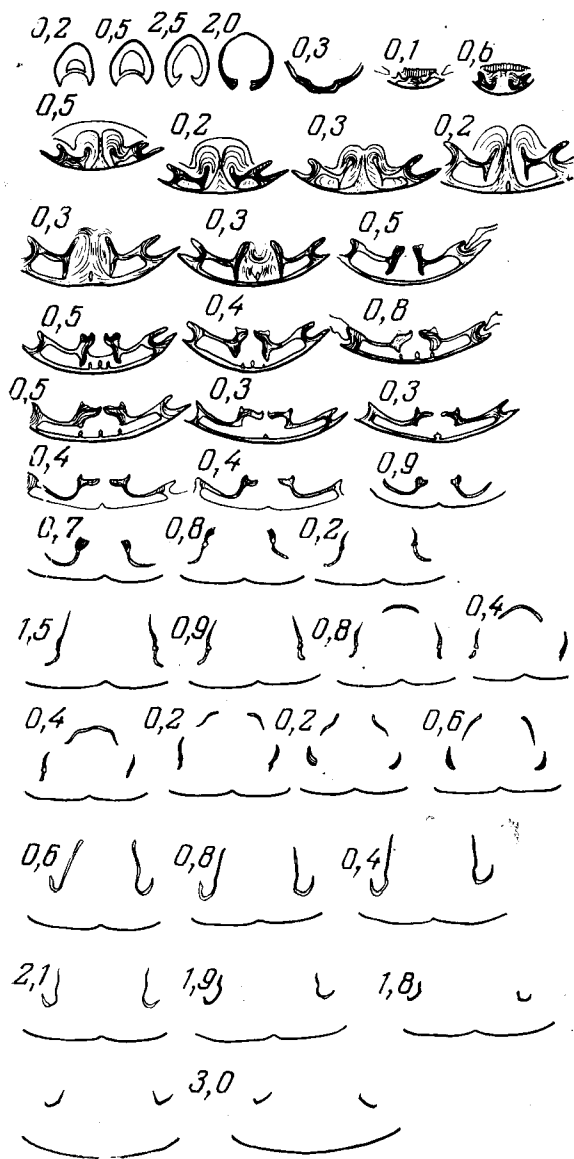 0,2 0,5 2,5 2,0 0,3 0,1 0,6
0,5 0,2 0,3 0,2
0,3 0,3 0,5
0,5 0,4 0,8
0,5 0,3 0,3
0,4 0,4 0,9
0,7 0,8 0,2
1,5 0,9 0,8 0,4
0,4 0,2 0,2 0,6
0,6 0,8 0,4
2,1 1,9 1,8
3,0